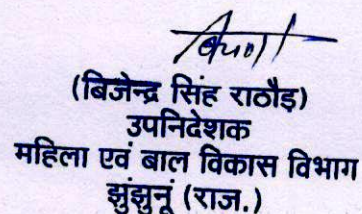 (बिजेन्द्र सिंह राठौड़)
उपनिदेशक
महिला एवं बाल विकास विभाग
झुंझुनूं (राज.)